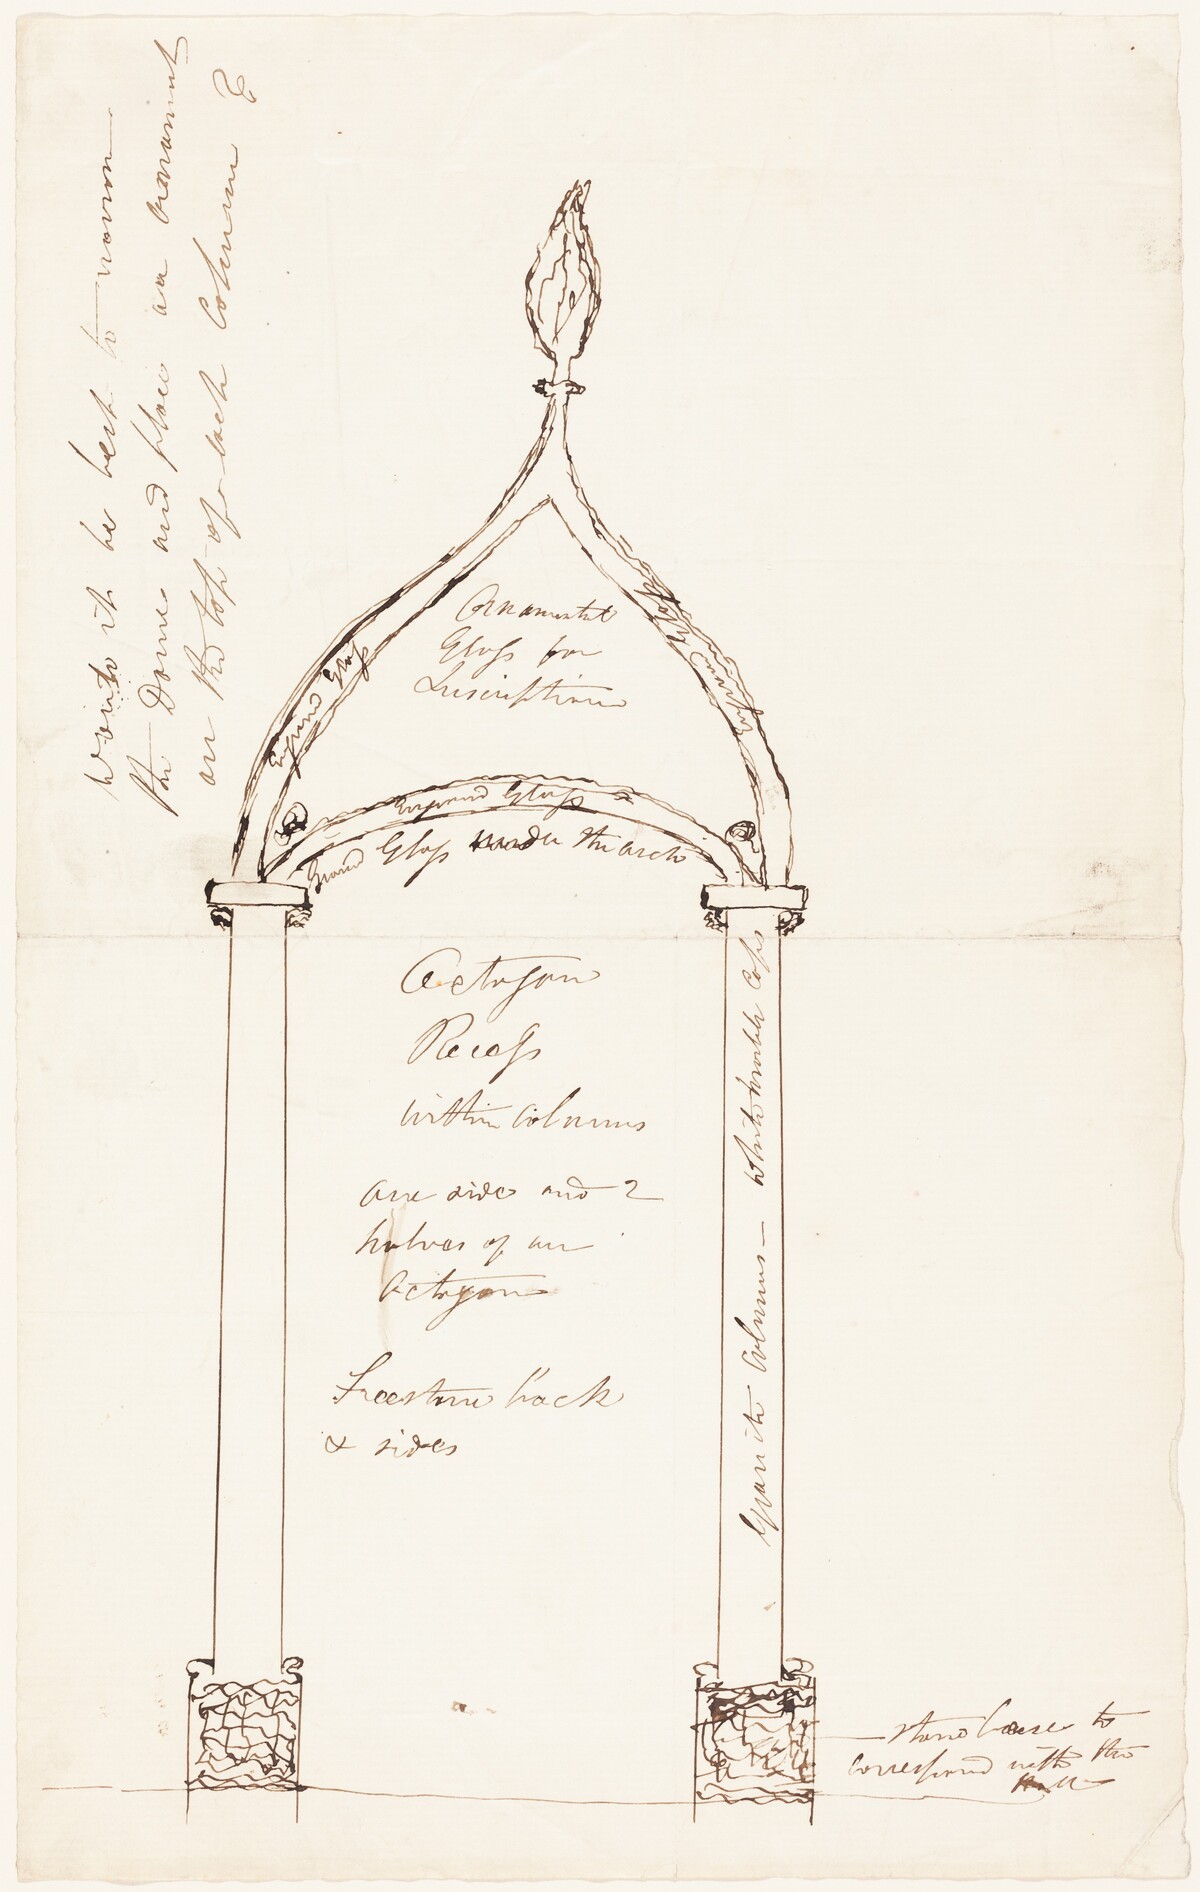 would it be best to
the Dome and place an ornament
on the top of each Column ?
Ornamental
Glass for
Inscription
Engraved Glass
Engraved Glass
Engraved Glass
Ground Glass under the arch
Octogon
Recess
within columns
one side and 2
halves of an
Octogon
Freestone back
& sides
Granite Columns — white marble Caps
— stone base to
correspond with the